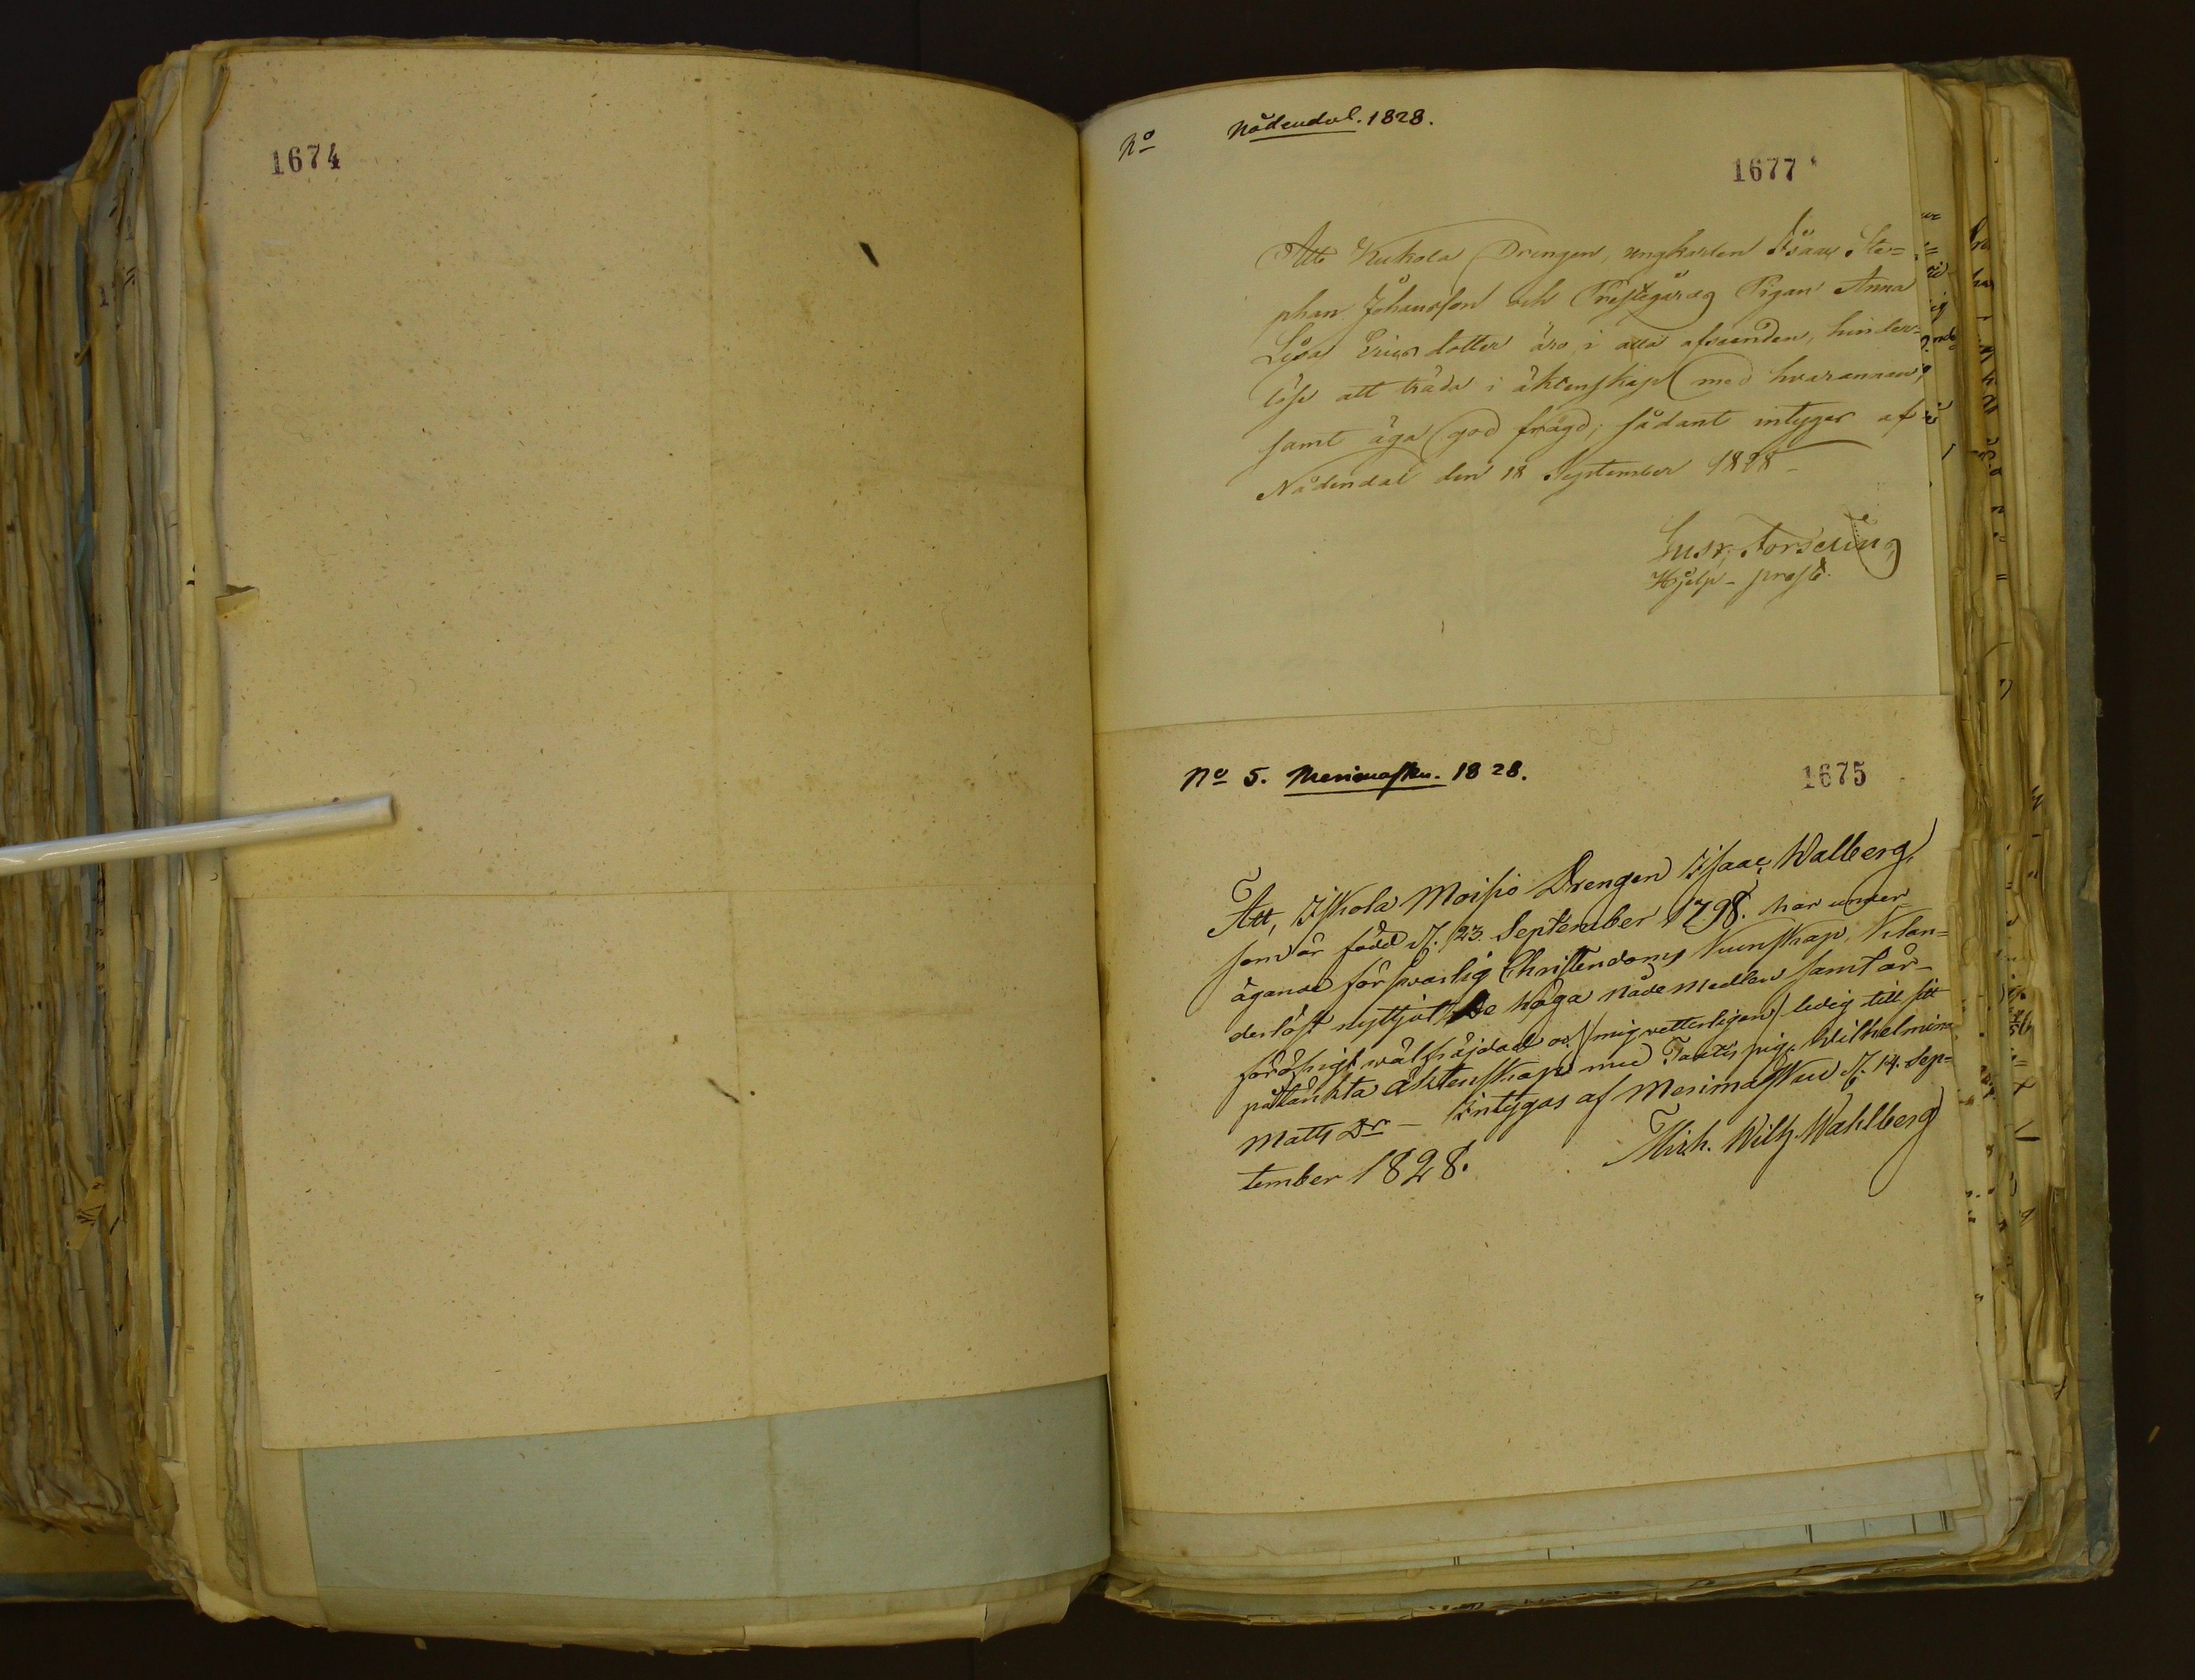 1674
No Nådendal. 1828.
1677
Att Kukola Drengen, ungkarlen Isaac Ste=
phan Johansson och Prestegårds Pigan Anna
Lisa Ericsdotter äro, i alla afseenden, hinder=
löse att träda i äktenskap med hvarannan,
samt äga god frägd; sådant intygar af
Nådendal den 18 September 1828 -
Gust. Forselius
Hjelp- prest.
No 5. Merimasku. 1828.
1675
Att, Iskola Moisio Drengen Isaac Walberg,
som är född d. 23. September 1798. har under-
ägande försvarlig Christendoms Kunskap, klan=
derlöst nyttjat de höga nåde medlen samt är-
före wälfräjdad och (mig vetterligen) ledig till sitt
påtänkta äktenskap med pig. Wilhelmina
Matts Dr - Intygas af Merimasku d. 14. Sep=
tember 1828.
Mich. Wilh. Wahlberg